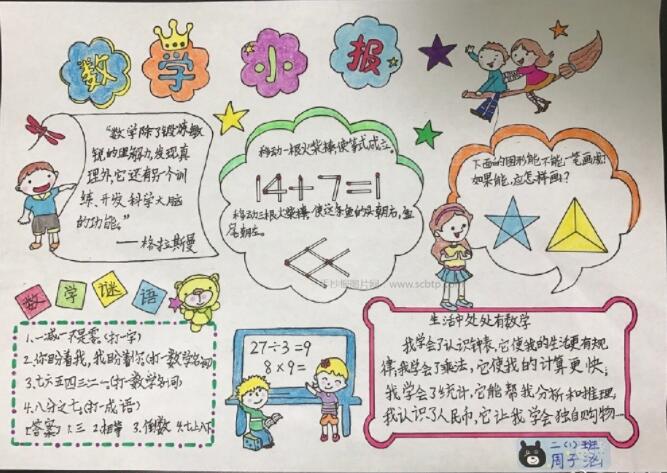 数学小报
"数学除了锻炼敏
锐的理解力,发现真
理外,它还有另一个训
练、开发科学大脑
的功能。"
——格拉斯曼
移动一根火柴棒使等式成立。
14+7=1
移动三根火柴棒,使这条鱼的头朝右,鱼
尾朝左。
下面的图形能不能一笔画成?
如果能,应怎样画?
数学谜语
1.一减一不是零(打一字)
2.你盼着我,我盼着你(打一数学名词)
3.七六五四三二一(打一数学名词)
4.八分之七(打一成语)
[答案] 1.三 2.相等 3.倒数 4.七上八下
27÷3=9
8×9=
生活中处处有数学
我学会了认识钟表,它使我的生活更有规
律,我学会了乘法,它使我的计算更快;
我学会了统计,它能帮我分析和推理,
我认识了人民币,它让我学会独自购物…
二(1)班
周子涵
www.scbtp.com